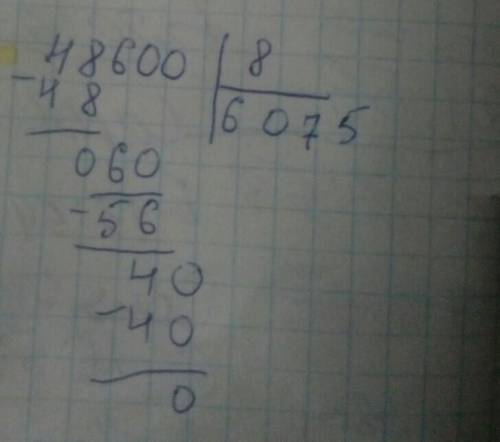 48600 | 8
- 48 | 6075
060
- 56
40
- 40
0